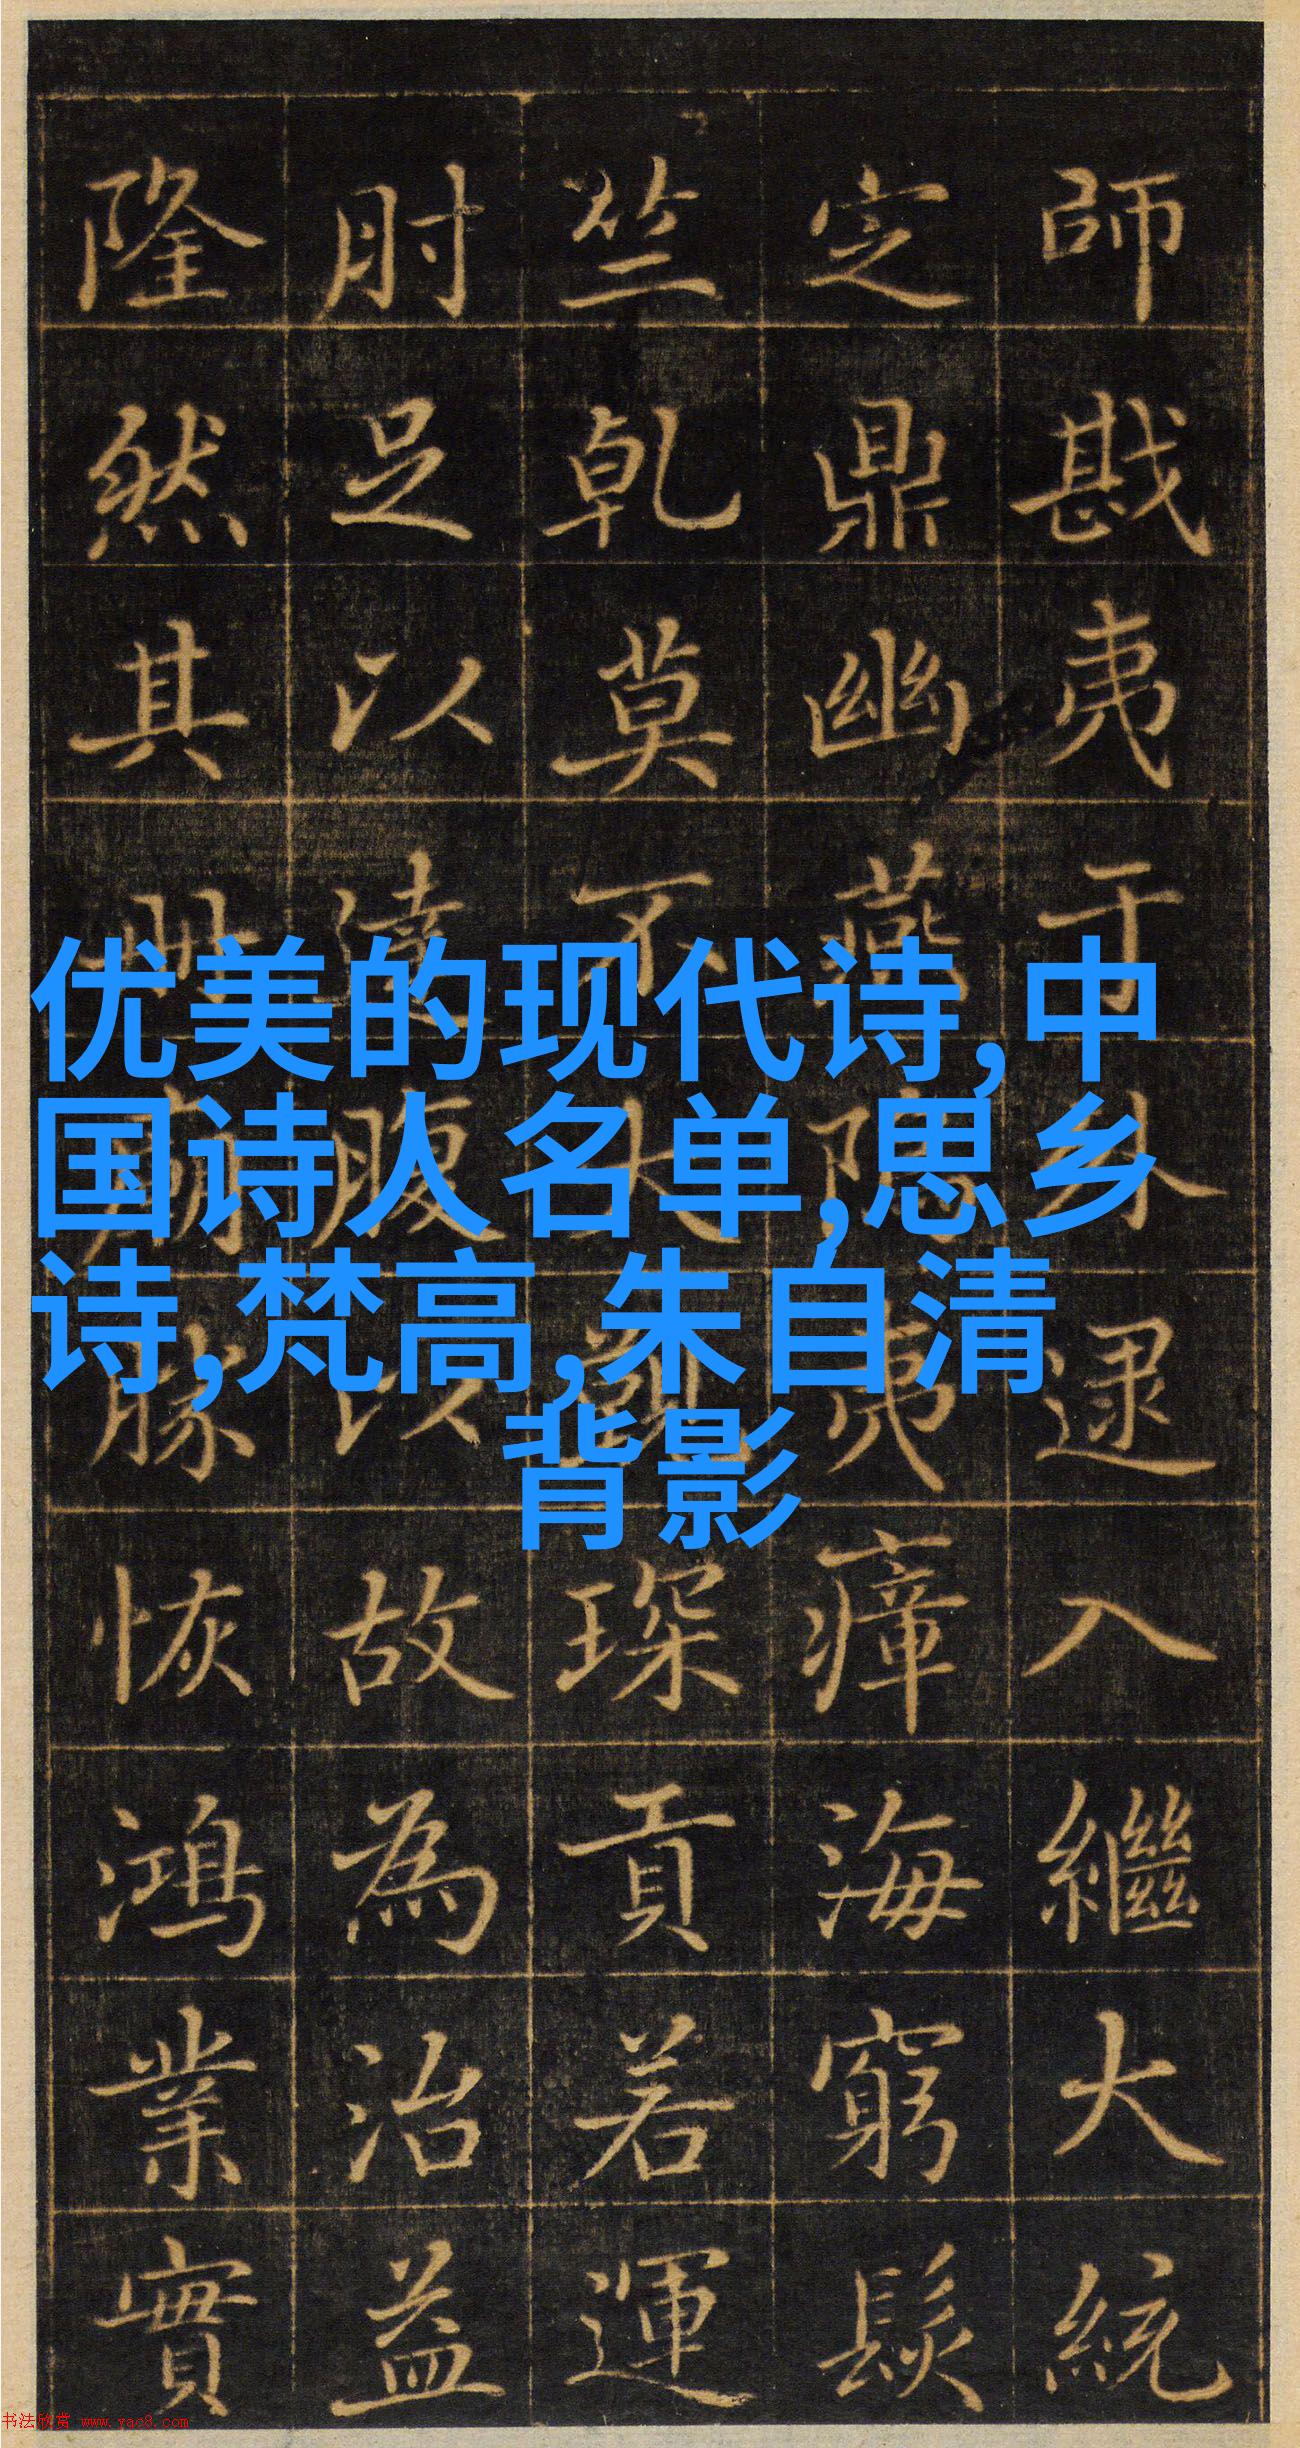 优美的现代诗,中
国诗人名单,思乡
诗,梵高,朱自清
背影
師戡夷于外逮入繼大統
定鼎幽燕夷瘴海窮髮
竺乾莫不大琛貢若運
肘足以達腹以故為治益
隆然其册廟勝恢鴻業實
书法欣赏 www.yac8.com